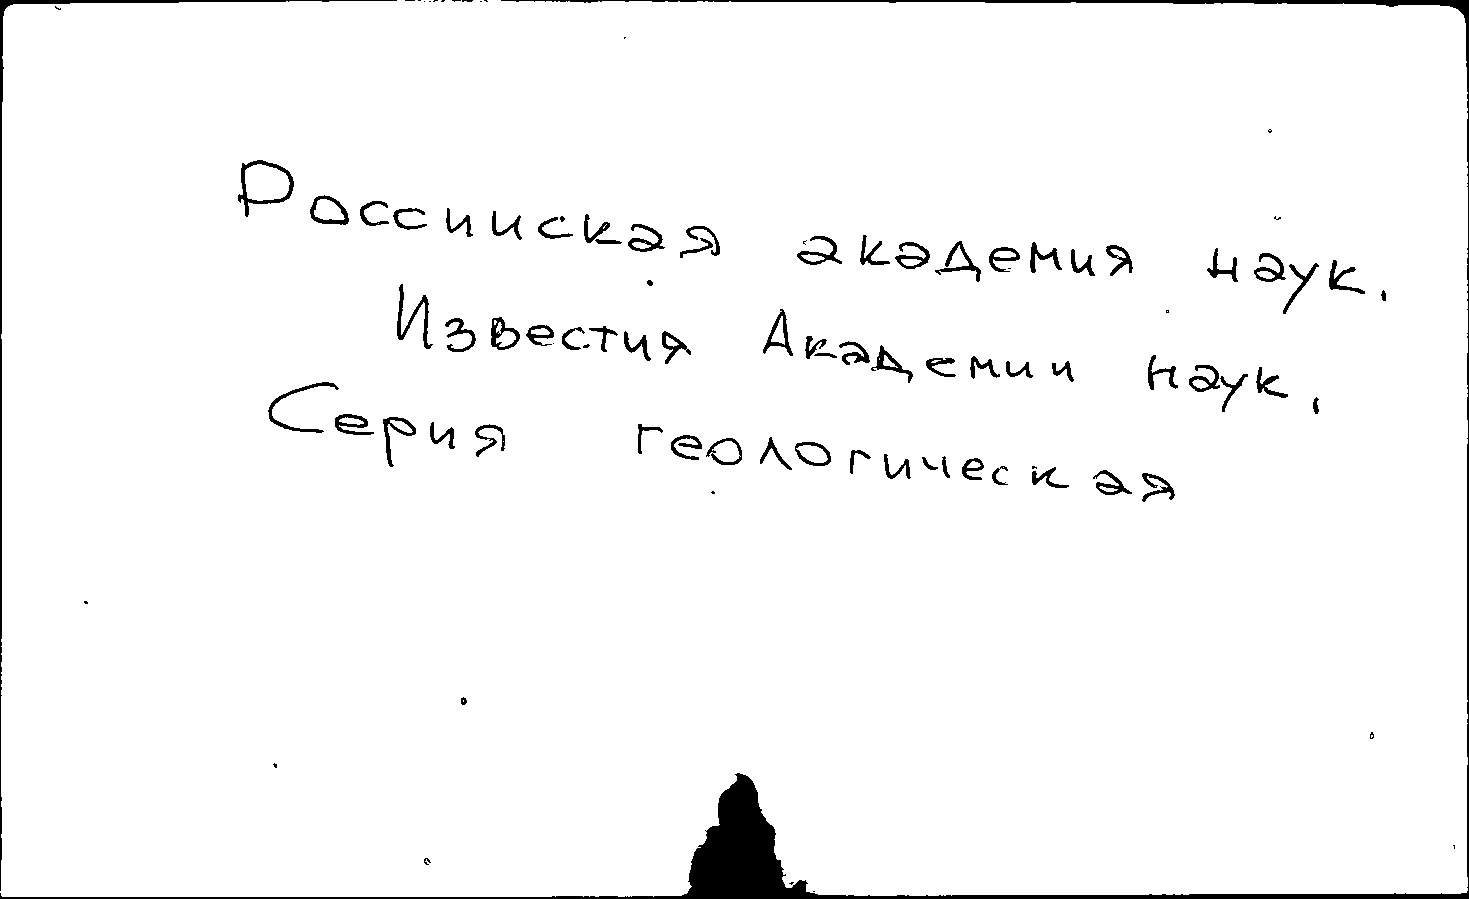 Россииская академия наук.
Известия Академии наук.
Серия геологическая